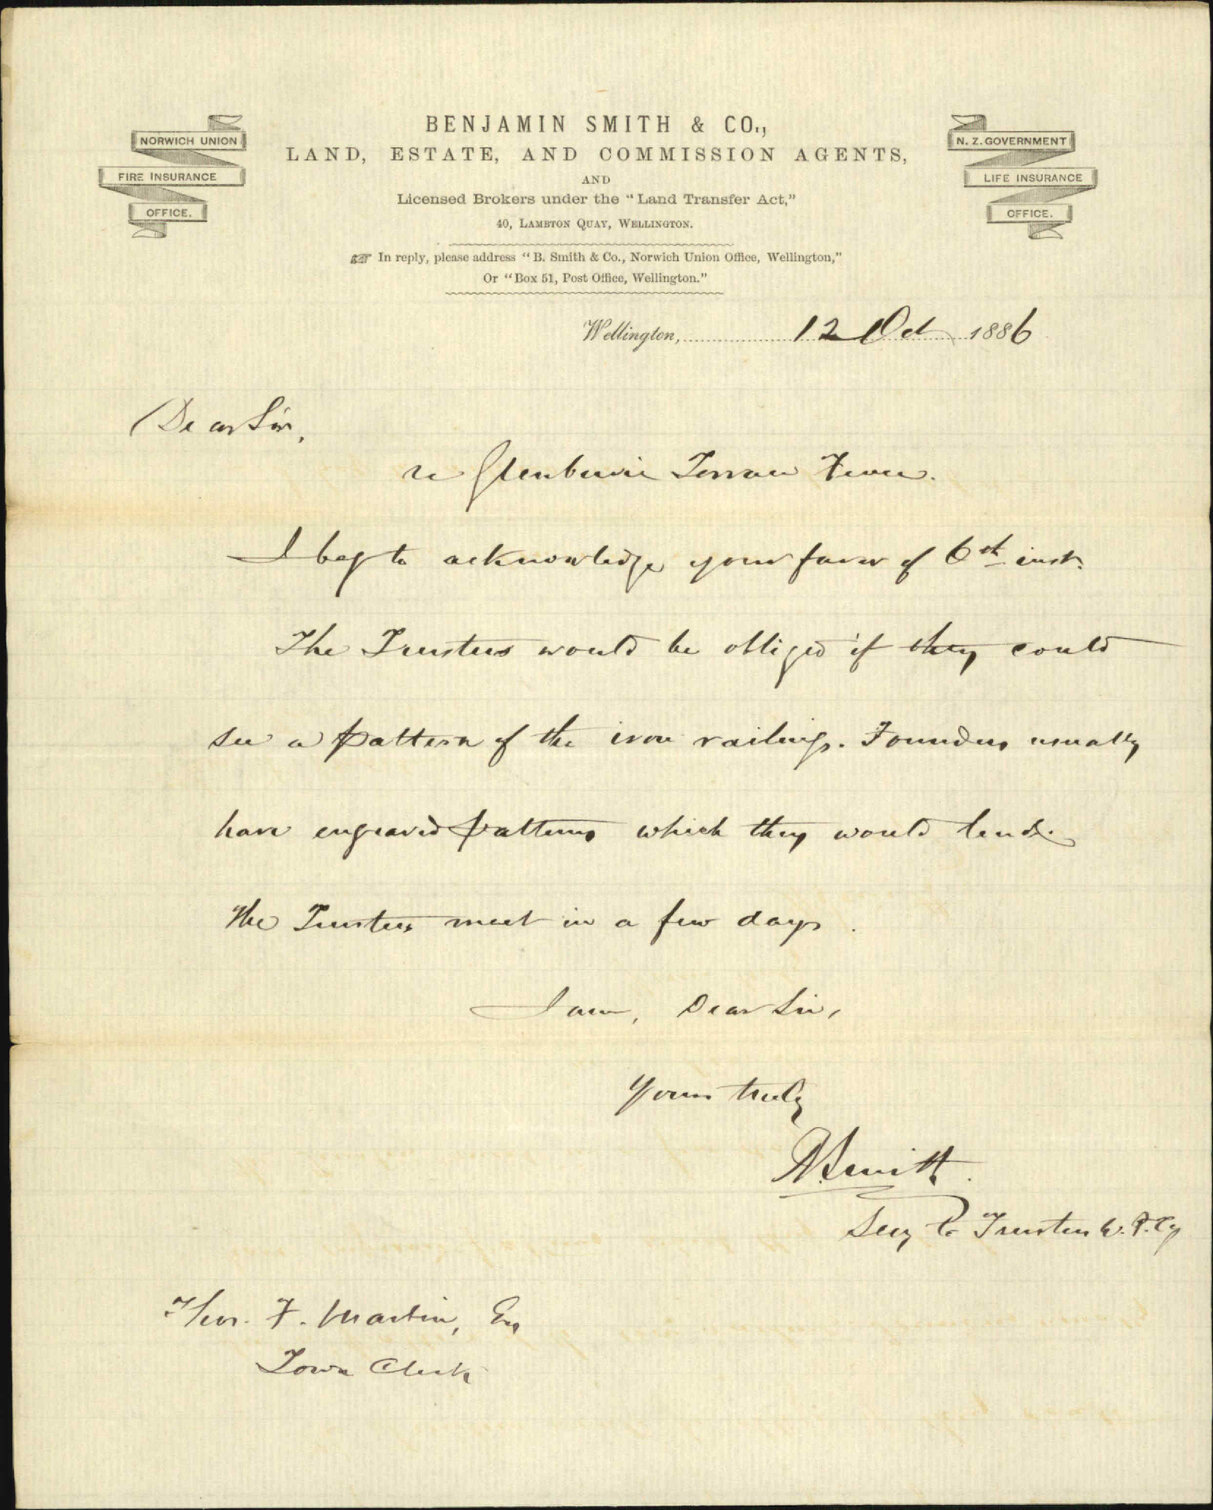 NORWICH UNION
FIRE INSURANCE
OFFICE.
BENJAMIN SMITH & CO.,
LAND, ESTATE, AND COMMISSION AGENTS,
AND
Licensed Brokers under the "Land Transfer Act,"
40, LAMBTON QUAY, WELLINGTON.
In reply, please address "B. Smith & Co., Norwich Union Office, Wellington,"
Or "Box 51, Post Office, Wellington."
N. Z. GOVERNMENT
LIFE INSURANCE
OFFICE.
Wellington, 12 Oct 1886
Dear Sir,
re Glenbervie Terrace Fence.
I beg to acknowledge your favor of 6th inst.
The Trustees would be obliged if they could
see a pattern of the iron railings. Founders usually
have engraved patterns which they would lend.
The Trustees meet in a few days.
I am, Dear Sir,
Yours truly
Smith
Secy to Trustees
Thos. F. Martin, Esq
Town Clerk